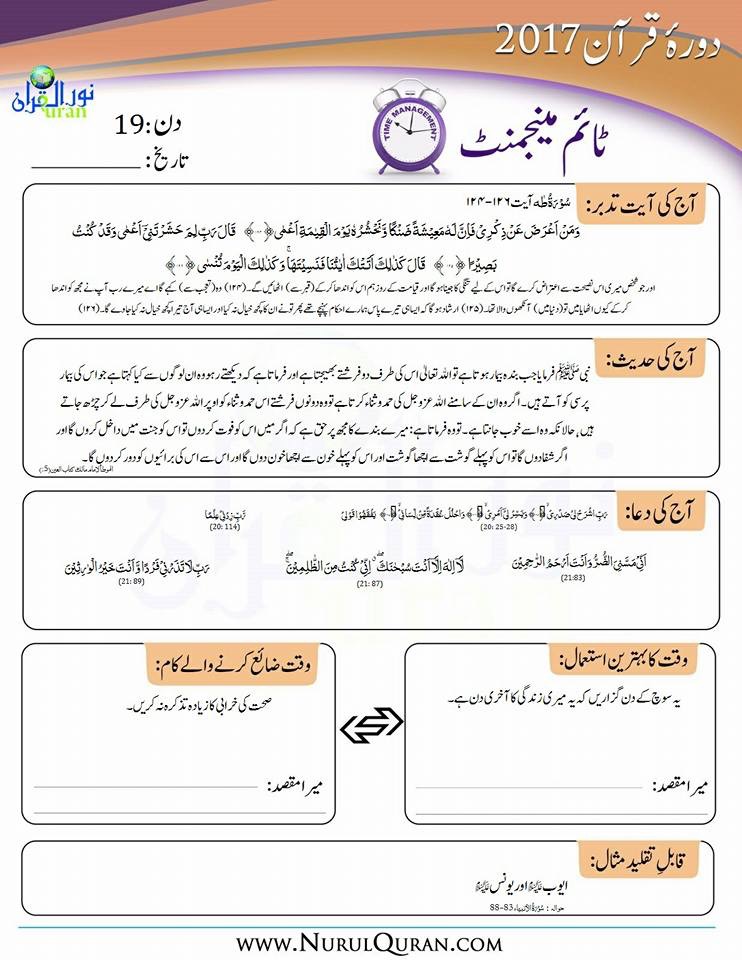 دورۂ قرآن 2017
نور القرآن
uran
ٹائم مینجمنٹ
TIME MANAGEMENT
دن:19
تاریخ:
آج کی آیت تدبر:
سُوْرَةُ طٰهٰ آیت ۱۲۶-۱۲۴
وَمَنْ اَعْرَضَ عَنْ ذِكْرِيْ فَاِنَّ لَهٗ مَعِيْشَةً ضَنْكًا وَّنَحْشُرُهٗ يَوْمَ الْقِيٰمَةِ اَعْمٰى قَالَ رَبِّ لِمَ حَشَرْتَنِيْٓ اَعْمٰى وَقَدْ كُنْتُ
بَصِيْرًا قَالَ كَذٰلِكَ اَتَتْكَ اٰيٰتُنَا فَنَسِيْتَهَا ۚ وَكَذٰلِكَ الْيَوْمَ تُنْسٰى
اور جو شخص میری اس نصیحت سے اعتراض کرے گا تو اس کے لیے تنگی کا جینا ہوگا اور قیامت کے روز ہم اس کو اندھا کر کے (قبر سے) اٹھائیں گے۔ (۱۲۴) وہ (تعجب سے) کہے گا اے میرے رب آپ نے مجھ کو اندھا
کر کے کیوں اٹھایا میں تو (دنیا میں) آنکھوں والا تھا۔ (۱۲۵) ارشاد ہوگا کہ ایسا ہی تیرے پاس ہمارے احکام پہنچے تھے پھر تو نے ان کا کچھ خیال نہ کیا اور ایسا ہی آج تیرا کچھ خیال نہ کیا جاوے گا۔ (۱۲۶)
آج کی حدیث:
نبی ﷺ فرمایا جب بندہ بیمار ہوتا ہے تو اللہ تعالیٰ اس کی طرف دو فرشتے بھیجتا ہے اور فرماتا ہے کہ دیکھتے رہو وہ ان لوگوں سے کیا کہتا ہے جو اس کی بیمار
پرسی کو آتے ہیں۔ اگر وہ ان کے سامنے اللہ عزوجل کی حمد و ثناء کرتا ہے تو وہ دونوں فرشتے اس حمد و ثناء کو اوپر اللہ عزوجل کی طرف لے کر چڑھ جاتے
ہیں، حالانکہ وہ اسے خوب جانتا ہے۔ تو وہ فرماتا ہے: میرے بندے کا مجھ پر حق ہے کہ اگر میں اس کو فوت کر دوں تو اس کو جنت میں داخل کروں گا اور
اگر شفا دوں گا تو اس کو پہلے گوشت سے اچھا گوشت اور اس کو پہلے خون سے اچھا خون دوں گا اور اس سے اس کی برائیوں کو دور کر دوں گا۔
الموطأ للامام مالك كتاب العين (:5)
آج کی دعا:
رَبِّ اشْرَحْ لِيْ صَدْرِيْ وَيَسِّرْ لِيْٓ اَمْرِيْ وَاحْلُلْ عُقْدَةً مِّنْ لِّسَانِيْ يَفْقَهُوْا قَوْلِيْ
(20: 25-28)
رَّبِّ زِدْنِيْ عِلْمًا
(20: 114)
اَنِّيْ مَسَّنِيَ الضُّرُّ وَاَنْتَ اَرْحَمُ الرّٰحِمِيْنَ
(21:83)
لَّآ اِلٰهَ اِلَّآ اَنْتَ سُبْحٰنَكَ ۖ اِنِّيْ كُنْتُ مِنَ الظّٰلِمِيْنَ
(21: 87)
رَبِّ لَا تَذَرْنِيْ فَرْدًا وَّاَنْتَ خَيْرُ الْوٰرِثِيْنَ
(21: 89)
وقت کا بہترین استعمال:
یہ سوچ کے دن گزاریں کہ یہ میری زندگی کا آخری دن ہے۔
میرا مقصد:
وقت ضائع کرنے والے کام:
صحت کی خرابی کا زیادہ تذکرہ نہ کریں۔
میرا مقصد:
قابلِ تقلید مثال:
ایوب علیہ السلام اور یونس علیہ السلام
حوالہ : سُوْرَةُ الْاَنْبِيَاء 83-88
WWW.NURULQURAN.COM